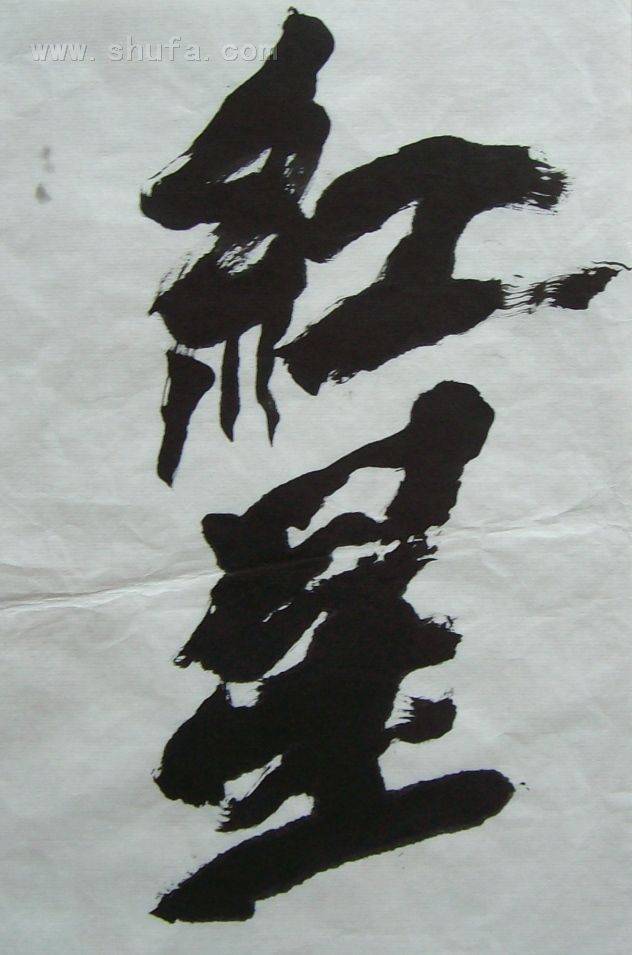 www.shufa.com
紅星